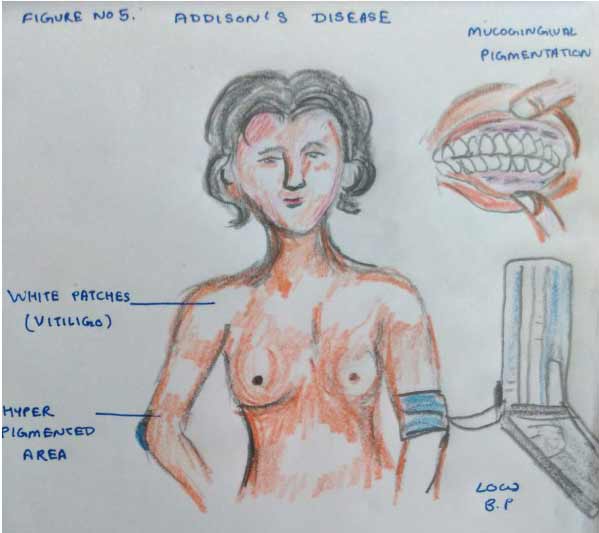 FIGURE NO 5. ADDISON'S DISEASE
MUCOGINGIVAL
PIGMENTATION
WHITE PATCHES
(VITILIGO)
HYPER
PIGMENTED
AREA
LOW
B.P